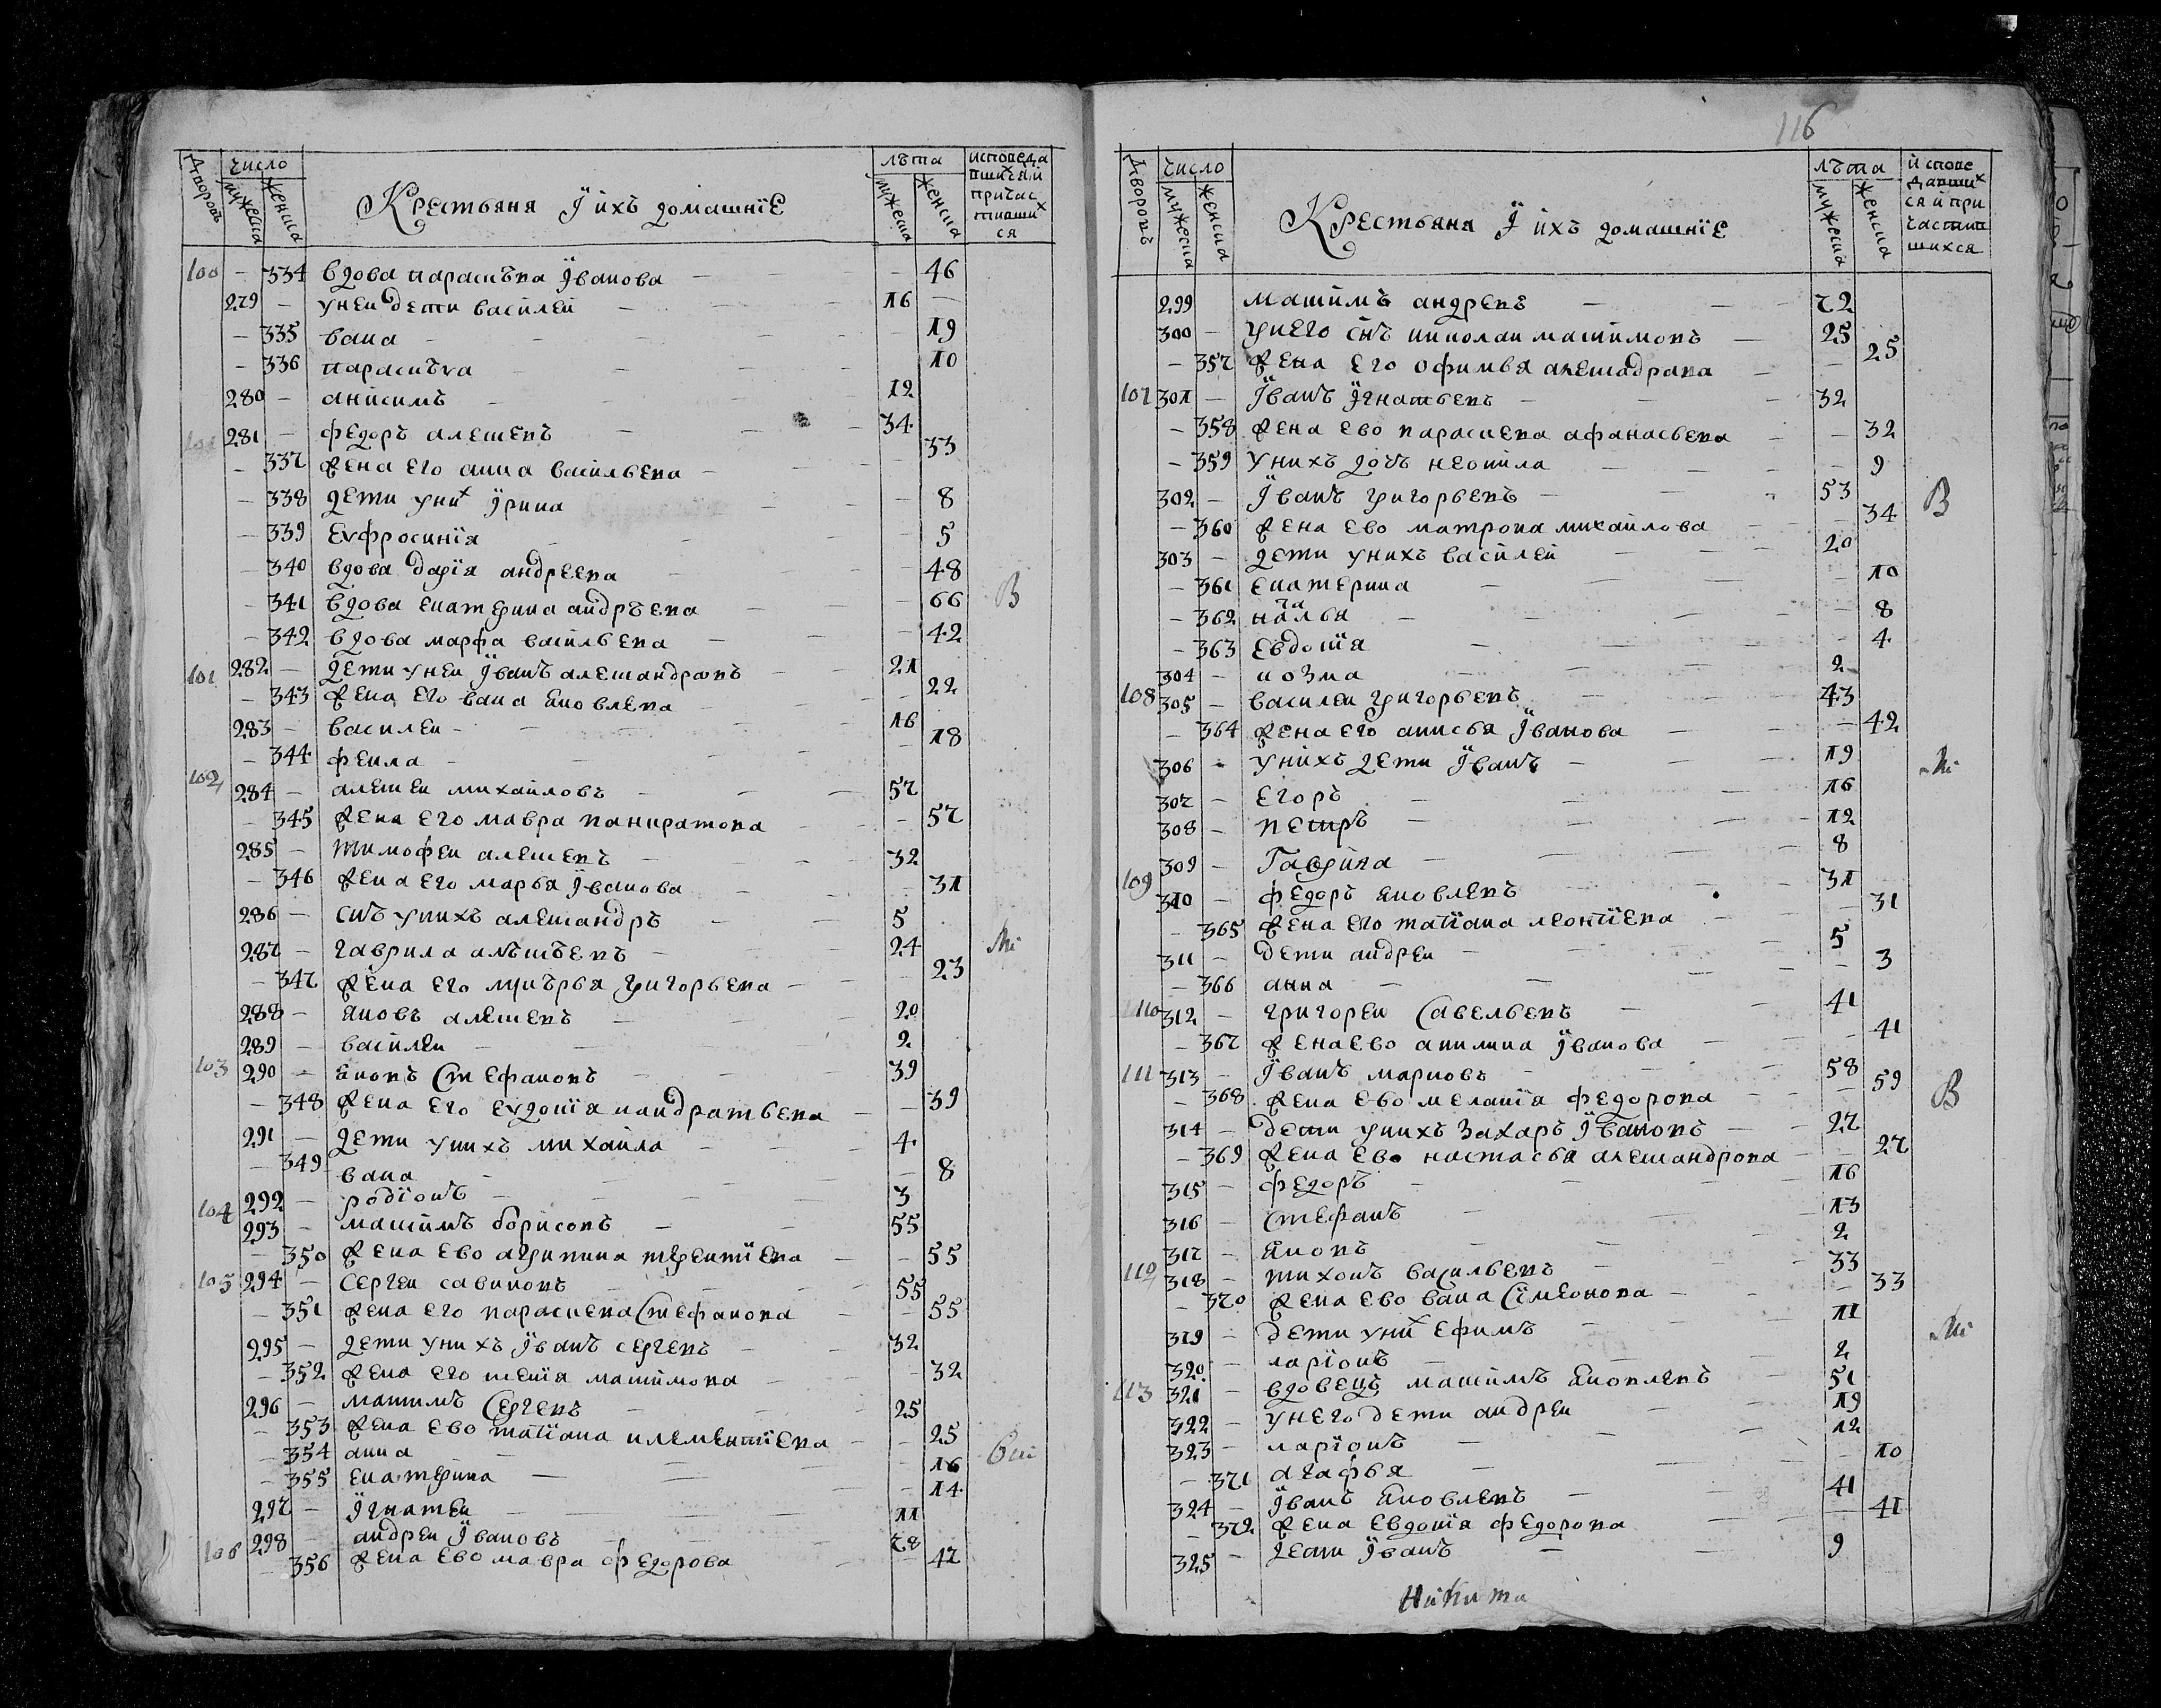 116
Дворовъ число мужеска женска Крестьяня Ї ихъ домашнїе лѣта мужеска женска исповеда вшихся й причас тившихся
100 - 334 вдова параскѣва Їванова - 46
279 - унеи дети василей 16 -
- 335 вака - 19
- 336 параскѣва - 10
280 - анисимъ 12
101 281 - федоръ алешеевъ 34
- 337 жена его анна васильева 33
- 338 дети уних Їрина - 8
- 339 еуфросинїя - 5
- 340 вдова дарїя андреева - 48
- 341 вдова екатерина андрѣева - 66 В
- 342 вдова марфа васильева - 42
101 282 - дети унеи Їванъ алешандровъ 21
- 343 жена его вака яковлева - 22
283 - василеи 16
- 344 фекла - 18
102 284 - алешеи михаиловъ 57
- 345 жена его мавра панкратова - 57
285 - тимофеи алешевъ 32
- 346 жена его марья Їванова - 31
286 - снъ унихъ алешандръ 5
287 - гаврила алѣшѣевъ 24
- 347 жена его григорьева - 23
288 - яковъ алешевъ 20
289 - василеи 2
103 290 - яковъ Стефановъ 39
- 348 жена его еудокїя кандратьева - 39
291 - дети унихъ михаила 4
- 349 вака - 8
292 - родїонъ 3
104 293 - машимъ борисовъ 55
- 350 жена ево агрипина терентїева - 55
105 294 - Сергеи савиновъ 55
- 351 жена его параскева Стефанова - 55
295 - дети унихъ Їванъ сергевъ 32
- 352 жена его шенїя машимова - 32
296 - машимъ Сергевъ 25
- 353 жена ево татїана клементїева - 25
- 354 анна - 16
- 355 екатерина - 14
297 - Їгнатеи 11
106 298 - андреи Ївановъ 78
- 356 жена ево мавра федорова - 47
Дворовъ число мужеска женска Крестьяня Ї ихъ домашнїе лѣта мужеска женска й испове давших ся й при частив шихся
299 машимъ андревъ 72
300 - унего снъ николаи машимовъ 25
- 357 жена его офимья алешадрава - 25
107 301 - Їванъ Їгнатьевъ 32
- 358 жена ево параскева афанасьева - 32
- 359 унихъ дочь неонила - 9
302 - Їванъ григорьевъ 53 В
- 360 жена ево матрона михаилова - 34
303 - дети унихъ василей 20
- 361 екатерина - 10
- 362 наталья - 8
- 363 евдокїя - 4
304 - козма 2
108 305 - василеи григорьевъ 43
- 364 жена его анисья Їванова - 42
306 - унихъ дети Їванъ 19
307 - егоръ 16
308 - петръ 12
309 - Гаврила 8
109 310 - федоръ яковлевъ 31
- 365 жена его татїана леонтїева - 31
311 - дети андреи 5
- 366 анна - 3
110 312 - григореи Савельевъ 41
- 367 жена ево акилина Їванова - 41
111 313 - Їванъ марковъ 58
- 368 жена ево меланїя федорова - 59 В
314 - дети унихъ Захаръ Ївановъ 27
- 369 жена ево настасья алешандрова - 27
315 - федоръ 16
316 - Стефанъ 13
317 - яковъ 2
112 318 - тихонъ васильевъ 33
- 370 жена ево вака Сїмеонова - 33
319 - дети уних ефимъ 11
320 - ларїонъ 2
113 321 - вдовецъ машимъ яковлевъ 51
322 - унего дети андреи 19
323 - ларїонъ 12
- 371 агафья - 10
324 - Їванъ яковлевъ 41
- 372 жена евдокїя федорова - 41
325 - дети Їванъ 9
Никита